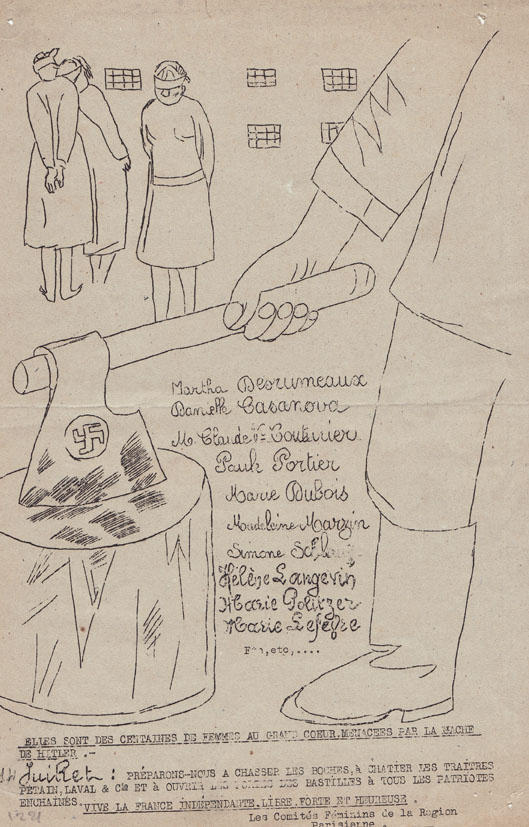 Martha Desrumeaux
Danielle Casanova
M. Claude Vt Couturier
Paule Portier
Marie Dubois
Madeleine Marzin
Simone
Hélène Langevin
Marie Politzer
Marie Lefebre
etc,....
ELLES SONT DES CENTAINES DE FEMMES AU GRAND COEUR.MENACEES PAR LA HACHE
DE HITLER .-
14 Juillet : PRÉPARONS-NOUS A CHASSER LES BOCHES, à CHATIER LES TRAÎTRES
PETAIN,LAVAL & Cie ET à OUVRIR LES PORTES DES BASTILLES à TOUS LES PATRIOTES
ENCHAÎNÉS. VIVE LA FRANCE INDÉPENDANTE.LIBRE.FORTE ET HEUREUSE .
Les Comités Féminins de la Région
Parisienne